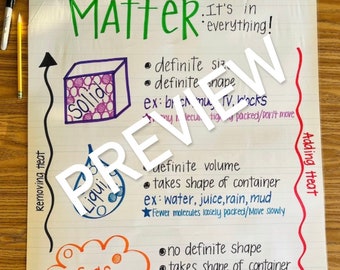 Matter: It's in
everything!
definite size
definite shape
Solid
ex: brick, mug, TV, blocks
Many molecules tightly packed/don't move
PREVIEW
definite volume
takes shape of container
Liquid
ex: water, juice, rain, mud
Fewer molecules loosely packed/Move slowly
Removing Heat
Adding Heat
no definite shape
takes shape of container